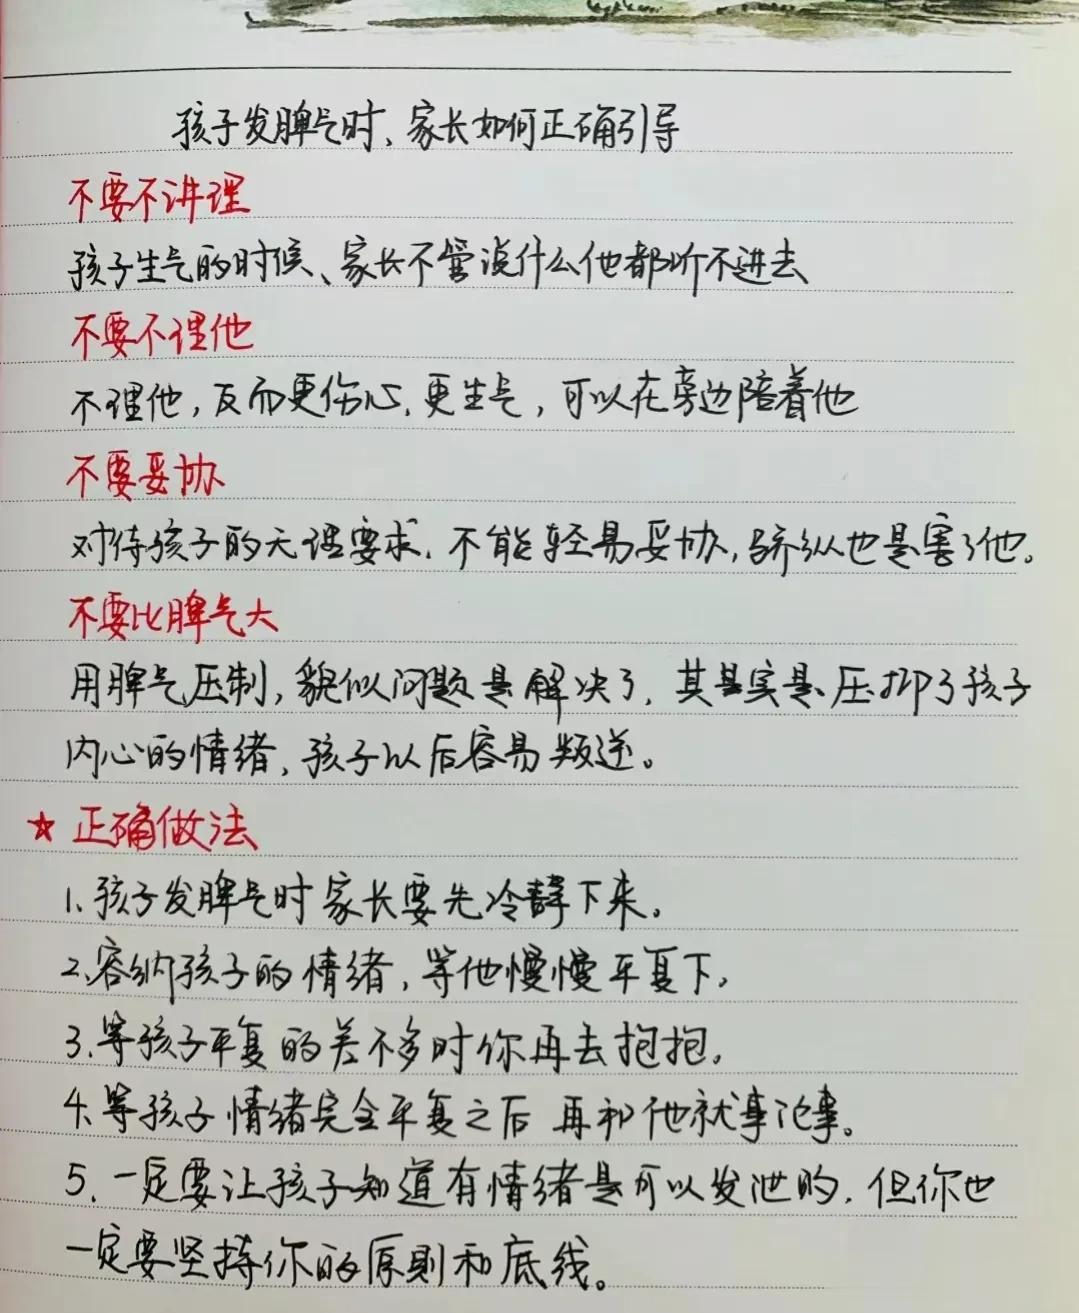 孩子发脾气时、家长如何正确引导
不要不讲理
孩子生气的时候、家长不管说什么他都听不进去
不要不理他
不理他,反而更伤心.更生气,可以在旁边陪着他
不要妥协
对待孩子的无理要求.不能轻易妥协,骄纵也是害了他。
不要比脾气大
用脾气压制,貌似问题是解决了.其是实是压抑了孩子
内心的情绪,孩子以后容易叛逆。
★正确做法
1.孩子发脾气时家长要先冷静下来.
2.容纳孩子的情绪,等他慢慢平复下.
3.等孩子平复的差不多时你再去抱抱.
4.等孩子情绪完全平复之后再和他就事论事。
5.一定要让孩子知道有情绪是可以发泄的.但你也
一定要坚持你的原则和底线。